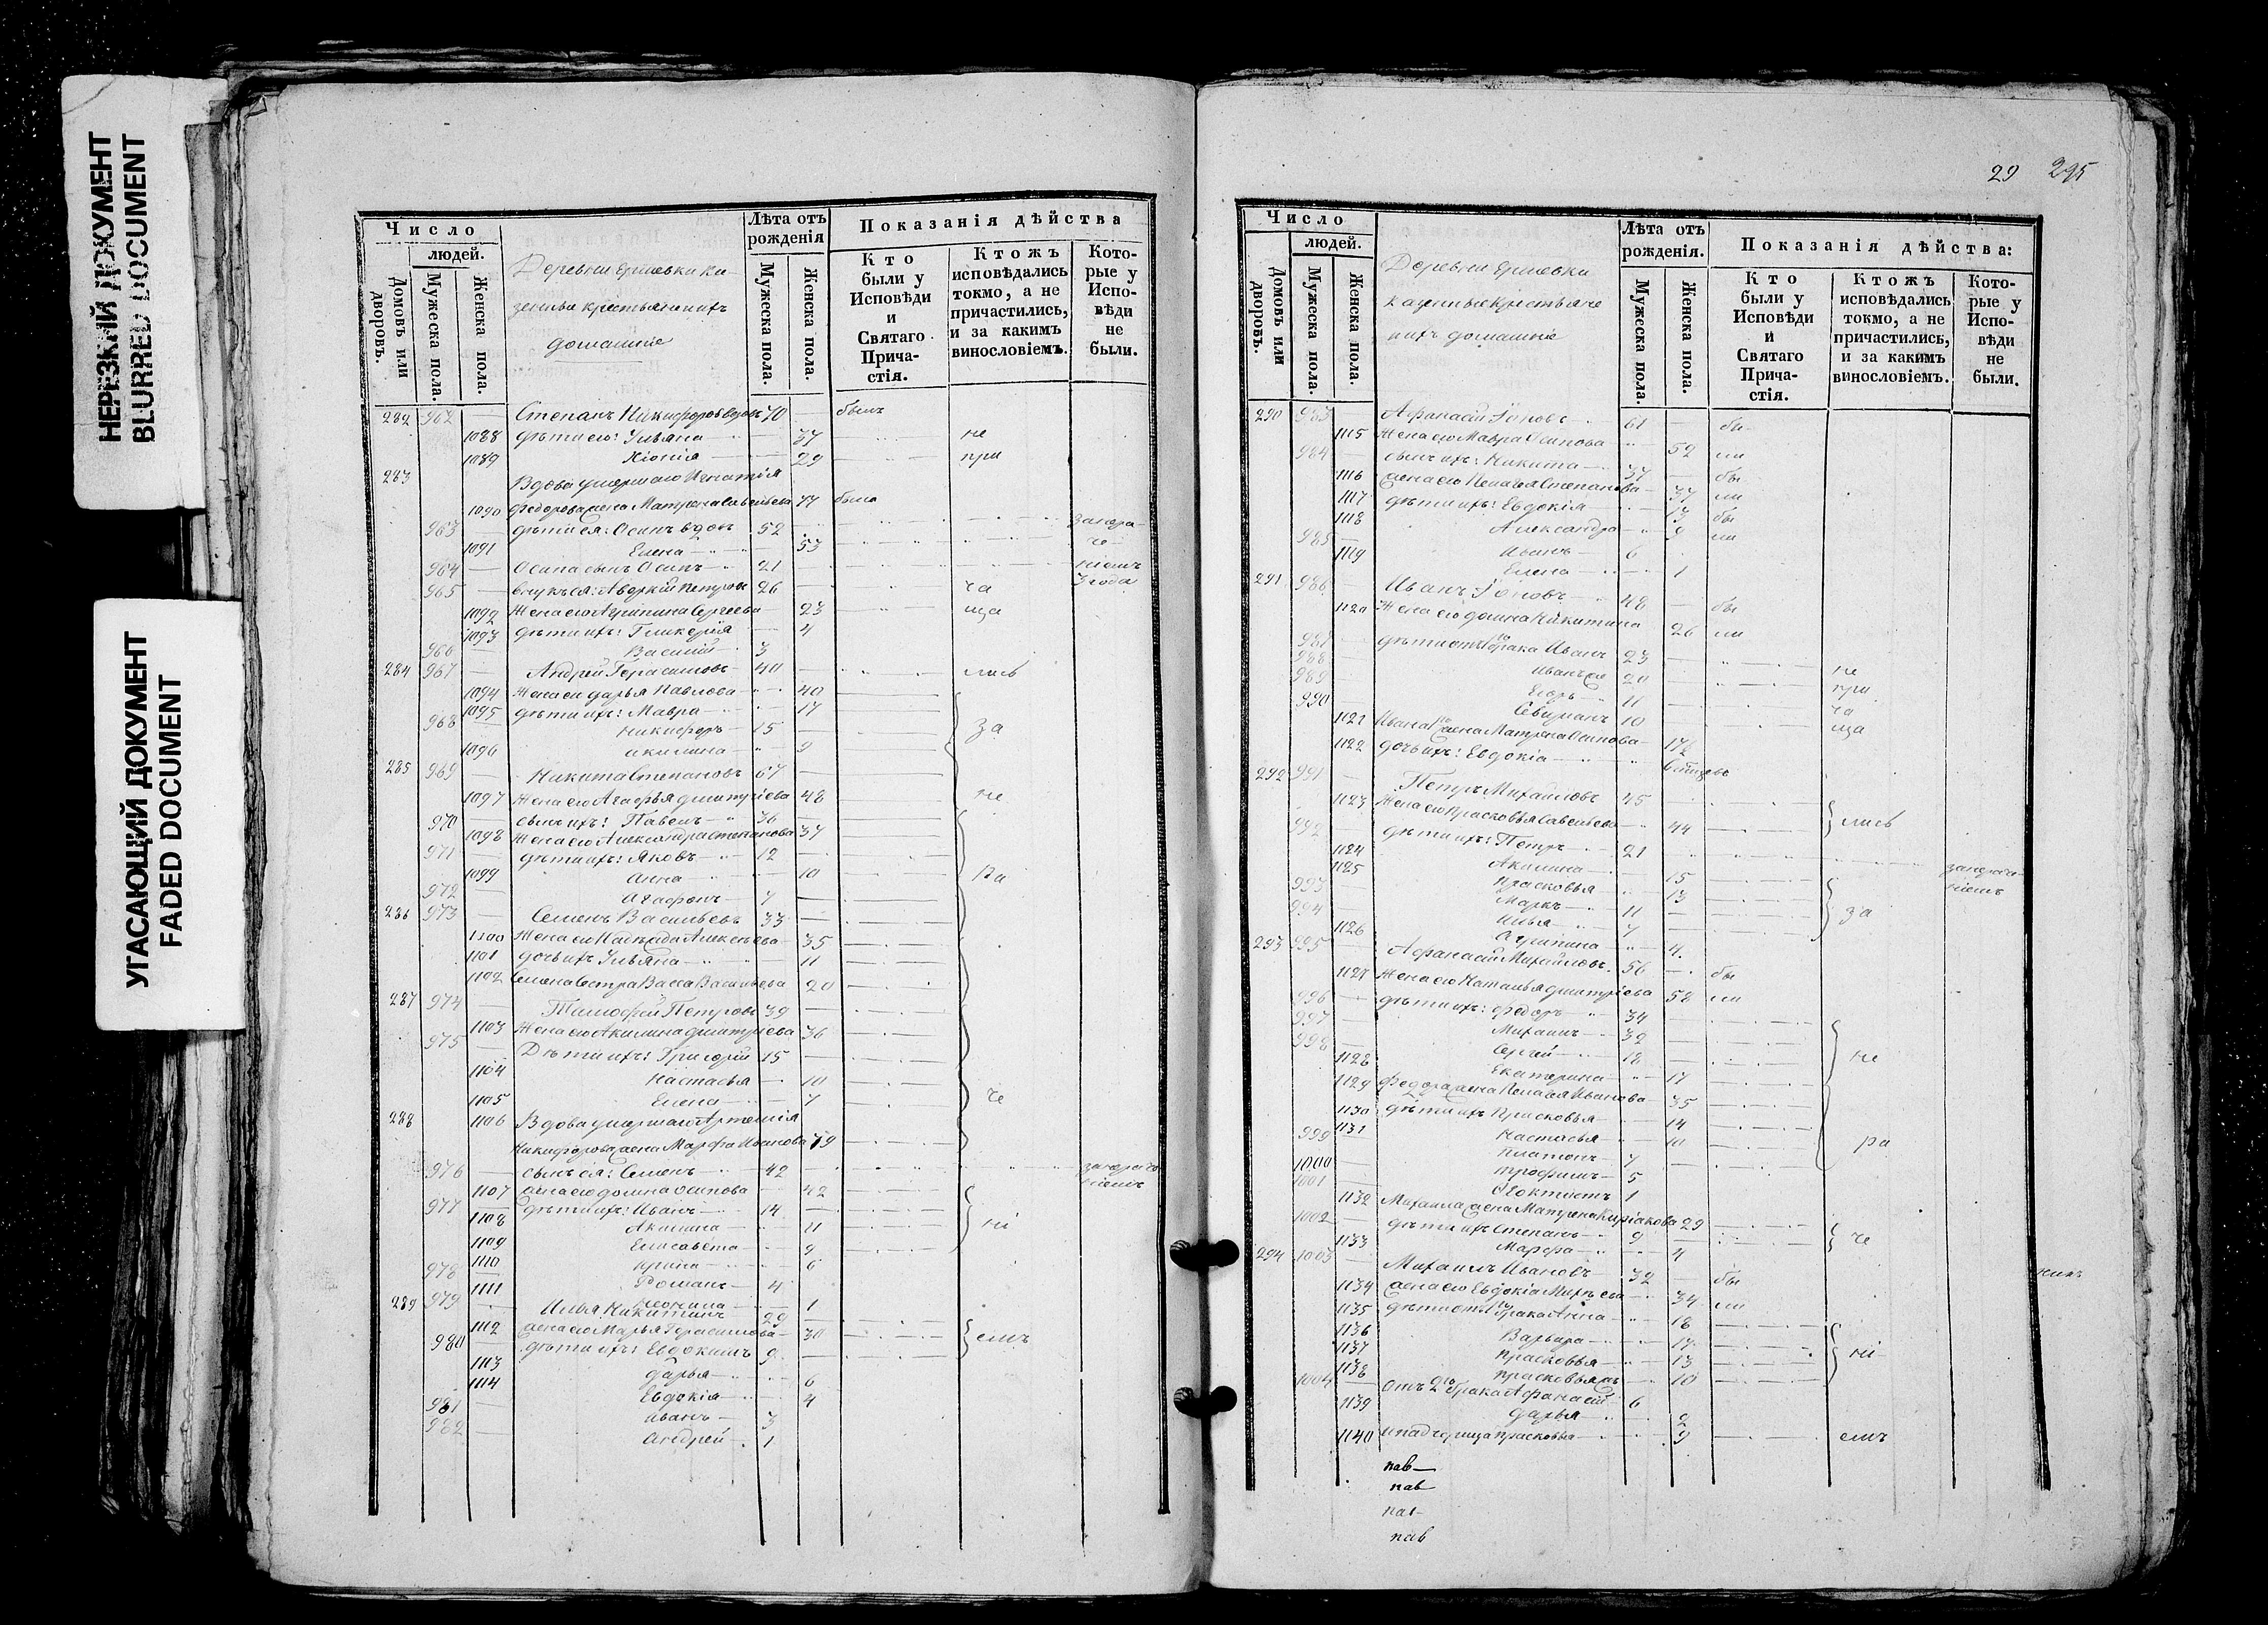 НЕРЕЗКИЙ ДОКУМЕНТ
BLURRED DOCUMENT
УГАСАЮЩИЙ ДОКУМЕНТ
FADED DOCUMENT
Число
людей.
Домовъ или дворовъ.
Мужеска пола.
Женска пола.
Деревни Ершевки ка-
домашніе
Лѣта отъ рожденія
Мужеска пола.
Женска пола.
Показанія дѣйства
Кто были у Исповѣди и Святаго Прича-стія.
Ктожъ исповѣдались токмо, а не причастились, и за какимъ винословіемъ.
Кото-рые у Испо-вѣди не были.
282 962 — Степанъ Никифоровъ 70 былъ
1088 дѣти его: Ульяна 37 не
1089 Хіонія 29 при
283 Вдова умершаго Игнатія
1090 Федорова жена Матрена Савельева 77 была
963 дѣти ея: Осипъ вдовъ 52
1091 Елена 53
964 Осипа сынъ Осипъ 21
965 внукъ ея: Аверкій Петровъ 26 ча
1092 Жена его Агрипина Сергеева 23 ща
1093 дѣти ихъ: Гликерія 4
966 Василій 3
284 967 Андрей Герасимовъ 40 лись
1094 Жена его Дарья Павлова 40
1095 дѣти ихъ: Мавра 17
968 Никифоръ 15 за
1096 Акилина 9
285 969 Никита Степановъ 67
1097 Жена его Агафья Дмитріева 48 не
970 сынъ ихъ: Павелъ 36
1098 Жена его Александра Степанова 37
971 дѣти ихъ: Яковъ 12
1099 Анна 10
972 Агафонъ 7
286 973 Семенъ Васильевъ 33
1100 Жена его Надежда Алексѣева 35
1101 дочь ихъ Ульяна 11
1102 Семена сестра Васса Васильева 20
287 974 Тимофей Петровъ 39
1103 Жена его Акилина Дмитріева 36
975 Дѣти ихъ: Григорій 15
1104 Настасья 10
1105 Елена 7 че
288 1106 Вдова умершаго Артемія
Никифорова жена Марфа Иванова 79
976 сынъ ея: Семенъ 42
1107 жена его Домна Осипова 42
977 дѣти ихъ: Иванъ 14
1108 Акилина 11 ні
1109 Елисавета 9
1110 Ирина 6
978 Романъ 4
1111 1
289 979 Илья Никитинъ 29
1112 жена его Марья Герасимова 30 емъ
980 дѣти ихъ: Евдокимъ 9
1113 Дарья 6
1114 Евдокія 4
981 Иванъ 3
982 Андрей 1
29 295
Число
людей.
Домовъ или дворовъ.
Мужеска пола.
Женска пола.
Деревни Ершевки
казенные крестьяне
ихъ домашніе
Лѣта отъ рожденія.
Мужеска пола.
Женска пола.
Показанія дѣйства:
Кто были у Исповѣди и Святаго Прича-стія.
Ктожъ исповѣдались токмо, а не причастились, и за какимъ винословіемъ.
Кото-рые у Испо-вѣди не были.
290 983 Афанасій 61 бы-
1115 Жена его Мавра Осипова 52 ли
984 сынъ ихъ: Никита 37 бы
1116 жена его Пелагея Степанова 37 ли
1117 дѣти ихъ: Евдокія 13 бы
1118 Александра 9 ли
985 Иванъ 6
1119 Елена 1
291 986 Иванъ 48 бы
1120 Жена его Домна Никитина 26 ли
987 дѣти отъ 1го брака Иванъ 23
988 Иванъ 20 не
989 Егоръ 11 при
990 10 ча
1121 Ивана 1го жена Матрена Осипова 17 ща
1122 дочь ихъ: Евдокія
292 991 Петръ Михайловъ 45
1123 Жена его Прасковья Савельева 44 лись
992 дѣти ихъ: Петръ 21
1124 Акилина 15
1125 Прасковья 13
993 Маркъ 11 за
994 Илья 7
1126 Агрипина 4
293 995 Афанасій Михайловъ 56 бы
1127 Жена его Наталья Дмитріева 58 ли
996 дѣти ихъ: Федоръ 34
997 Михаилъ 32
998 Сергей 18 не
1128 Екатерина 17
1129 Федора жена Пелагея Иванова 35
1130 дѣти ихъ Прасковья 14
1131 Настасья 10 ра
999 Платонъ 7
1000 Трофимъ 5
1001 Феоктистъ 1
1132 Михаила жена Матрена Киріакова 29
1002 дѣти ихъ Степанъ 9 че
1133 Марфа 4
294 1003 Михаилъ Ивановъ 32 бы
1134 жена его Евдокія 34 ли
1135 дѣти отъ 1го брака Анна 18
1136 Варвара 17
1137 Прасковья 13 ні
1138 Прасковья 10
1004 Отъ 2го брака Афанасій 6
1139 Дарья 2
1140 и падчерица Прасковья 9 емъ